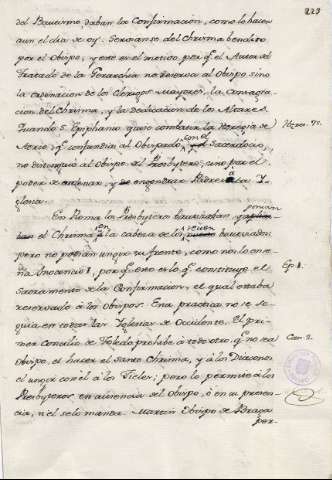 223
del Bautismo daban la Confirmacion, como lo hacen
aun el dia de oy. Servianse del Chrisma bendito
por el Obispo, y este es el motivo por q.e el Autor del
Tratado de la Gerarchia no reserva al Obispo sino
la ordenacion de los Clerigos mayores, la Consagra
cion del Chrisma, y la Dedicacion de los Altares.
Quando S. Epiphanio quiso combatir la Heregia de
Aerio q.e confundia al Obispado con el Sacerdocio,
no distinguio al Obispo del Presbytero, sino por el
poder de ordenar, y de engendrar Padres a la Y-
glesia.
Hæres. 75.
En Roma los Presbyteros bautizaban ponian
el Chrisma en la cabeza de los bautizados,
pero no podian ungir su frente, como nos lo ense-
ña Inocencio I. por q.e esto es lo q.e constituye el
Sacramento de la Confirmacion, el qual estaba
reservado à los Obispos. Esta practica no se se-
guia en todas las Yglesias de Occidente. El pri-
mer Concilio de Toledo prohibe à todo otro q.e no sea
Obispo, el hacer el Santo Chrisma, y à los Diaconos
el ungir con èl à los Fieles; pero lo permite à los
Presbyteros, en ausencia del Obispo, ò en su presen-
cia, si èl se lo manda. Martin Obispo de Braga
per-
Ep. 1.
Can. 2.